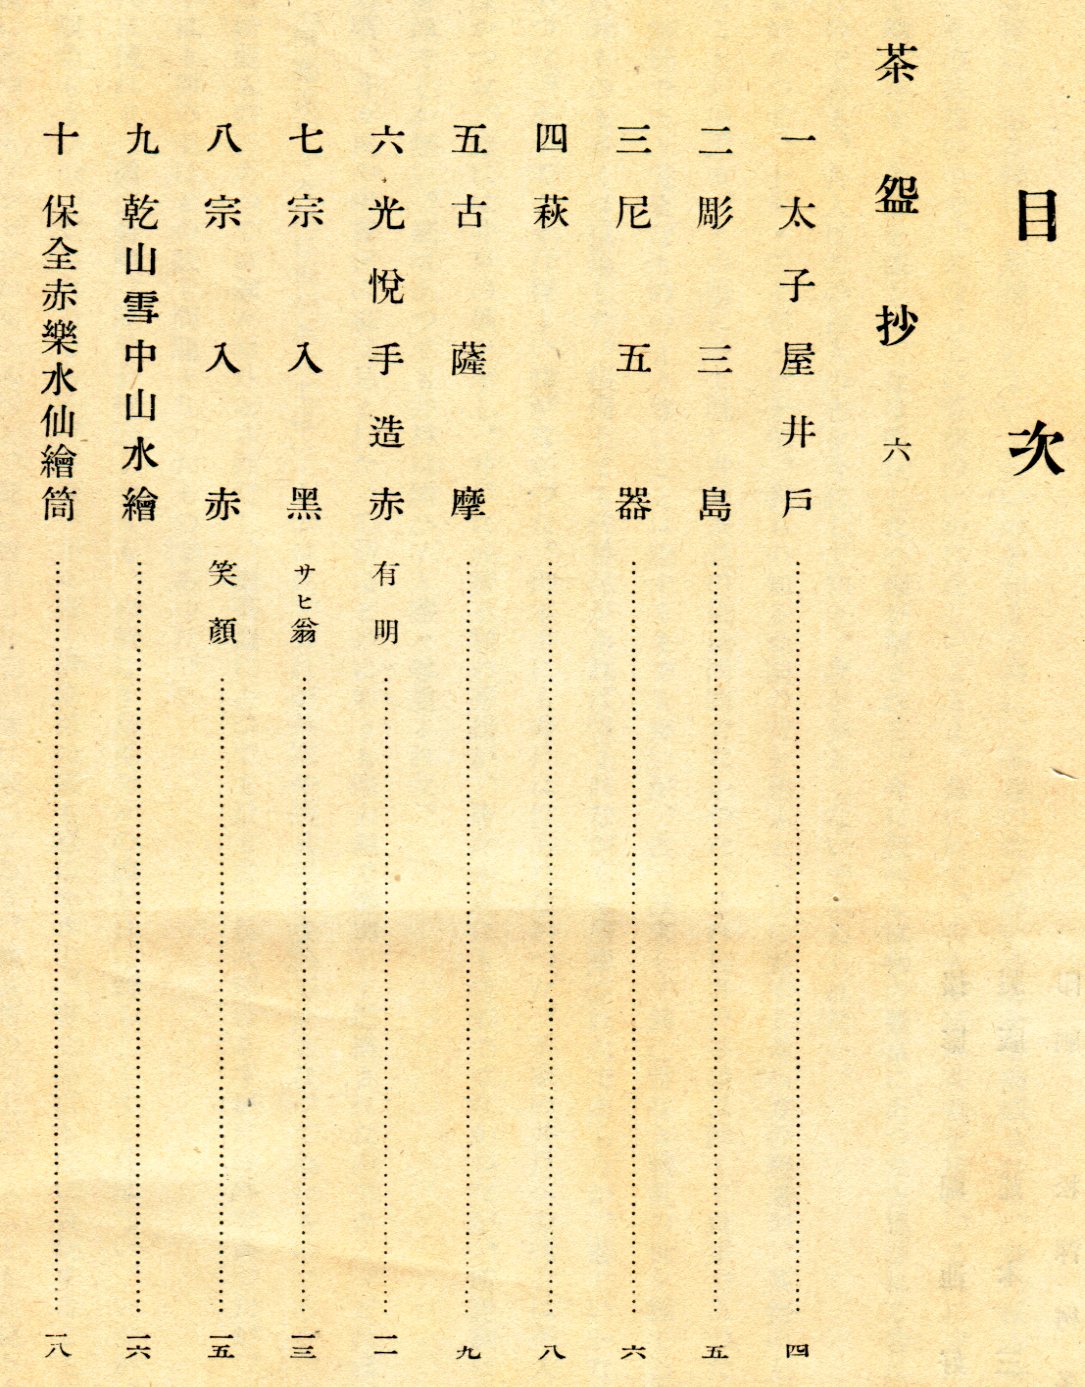 目次
茶盌抄 六
一 太子屋井戶……四
二 彫三島……五
三 尼五器……六
四 萩……八
五 古薩摩……九
六 光悅手造赤 有明……一一
七 宗入黑 サヒ翁……一三
八 宗入赤 笑顏……一五
九 乾山雪中山水繪……一六
十 保全赤樂水仙繪筒……一八